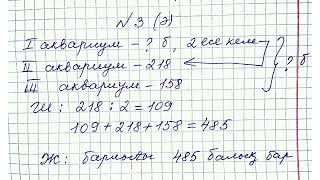 №3 (ә)
I аквариум - ? б, 2 есе кем
II аквариум - 218
III аквариум - 158
? б
Ш: 218 : 2 = 109
109 + 218 + 158 = 485
Ж: барлығы 485 балық бар